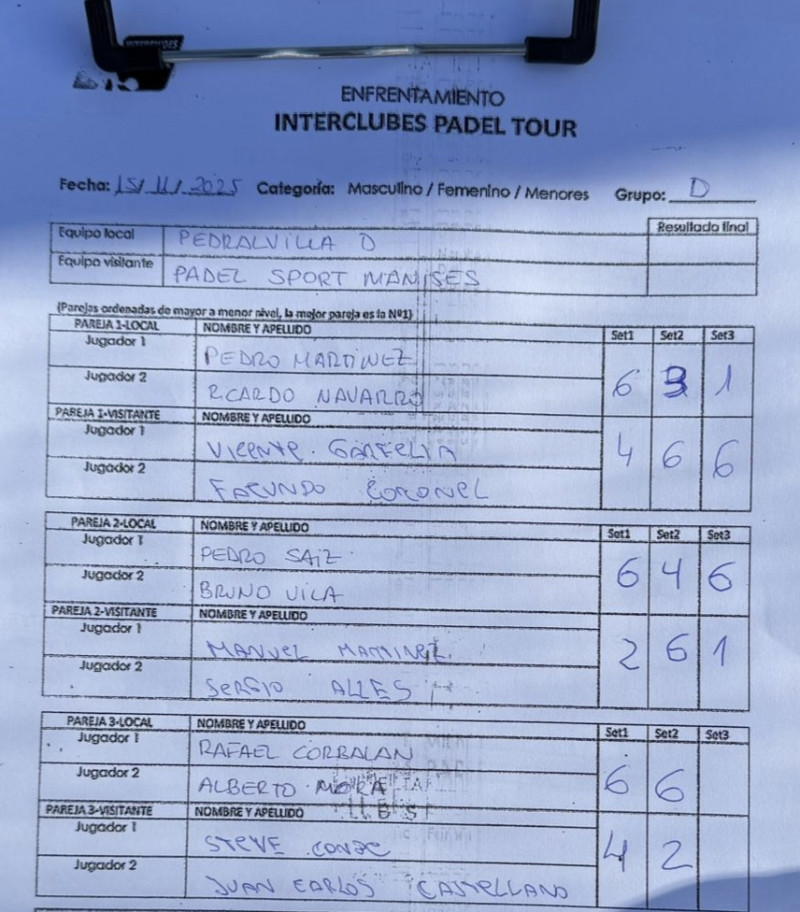 INTERCLUBES
ENFRENTAMIENTO
INTERCLUBES PADEL TOUR
Fecha: 15/11/2025 Categoría: Masculino / Femenino / Menores Grupo: D
Resultado final
Equipo local PEDRALVILLA D
Equipo visitante PADEL SPORT MANISES
(Parejas ordenadas de mayor a menor nivel, la mejor pareja es la Nº1)
PAREJA 1-LOCAL NOMBRE Y APELLIDO Set1 Set2 Set3
Jugador 1 PEDRO MARTINEZ
Jugador 2 RCARDO NAVARRO 6 3 1
PAREJA 1-VISITANTE NOMBRE Y APELLIDO
Jugador 1 VICENTE 4 6 6
Jugador 2 FACUNDO CORONEL
PAREJA 2-LOCAL NOMBRE Y APELLIDO Set1 Set2 Set3
Jugador 1 PEDRO SAIZ
Jugador 2 BRUNO VILA 6 4 6
PAREJA 2-VISITANTE NOMBRE Y APELLIDO
Jugador 1 MANUEL 2 6 1
Jugador 2 SERGIO ALLES
PAREJA 3-LOCAL NOMBRE Y APELLIDO Set1 Set2 Set3
Jugador 1 RAFAEL CORBALAN
Jugador 2 ALBERTO MORA 6 6
PAREJA 3-VISITANTE NOMBRE Y APELLIDO
Jugador 1 STEVE CONDE 4 2
Jugador 2 JUAN CARLOS CASTELLANO